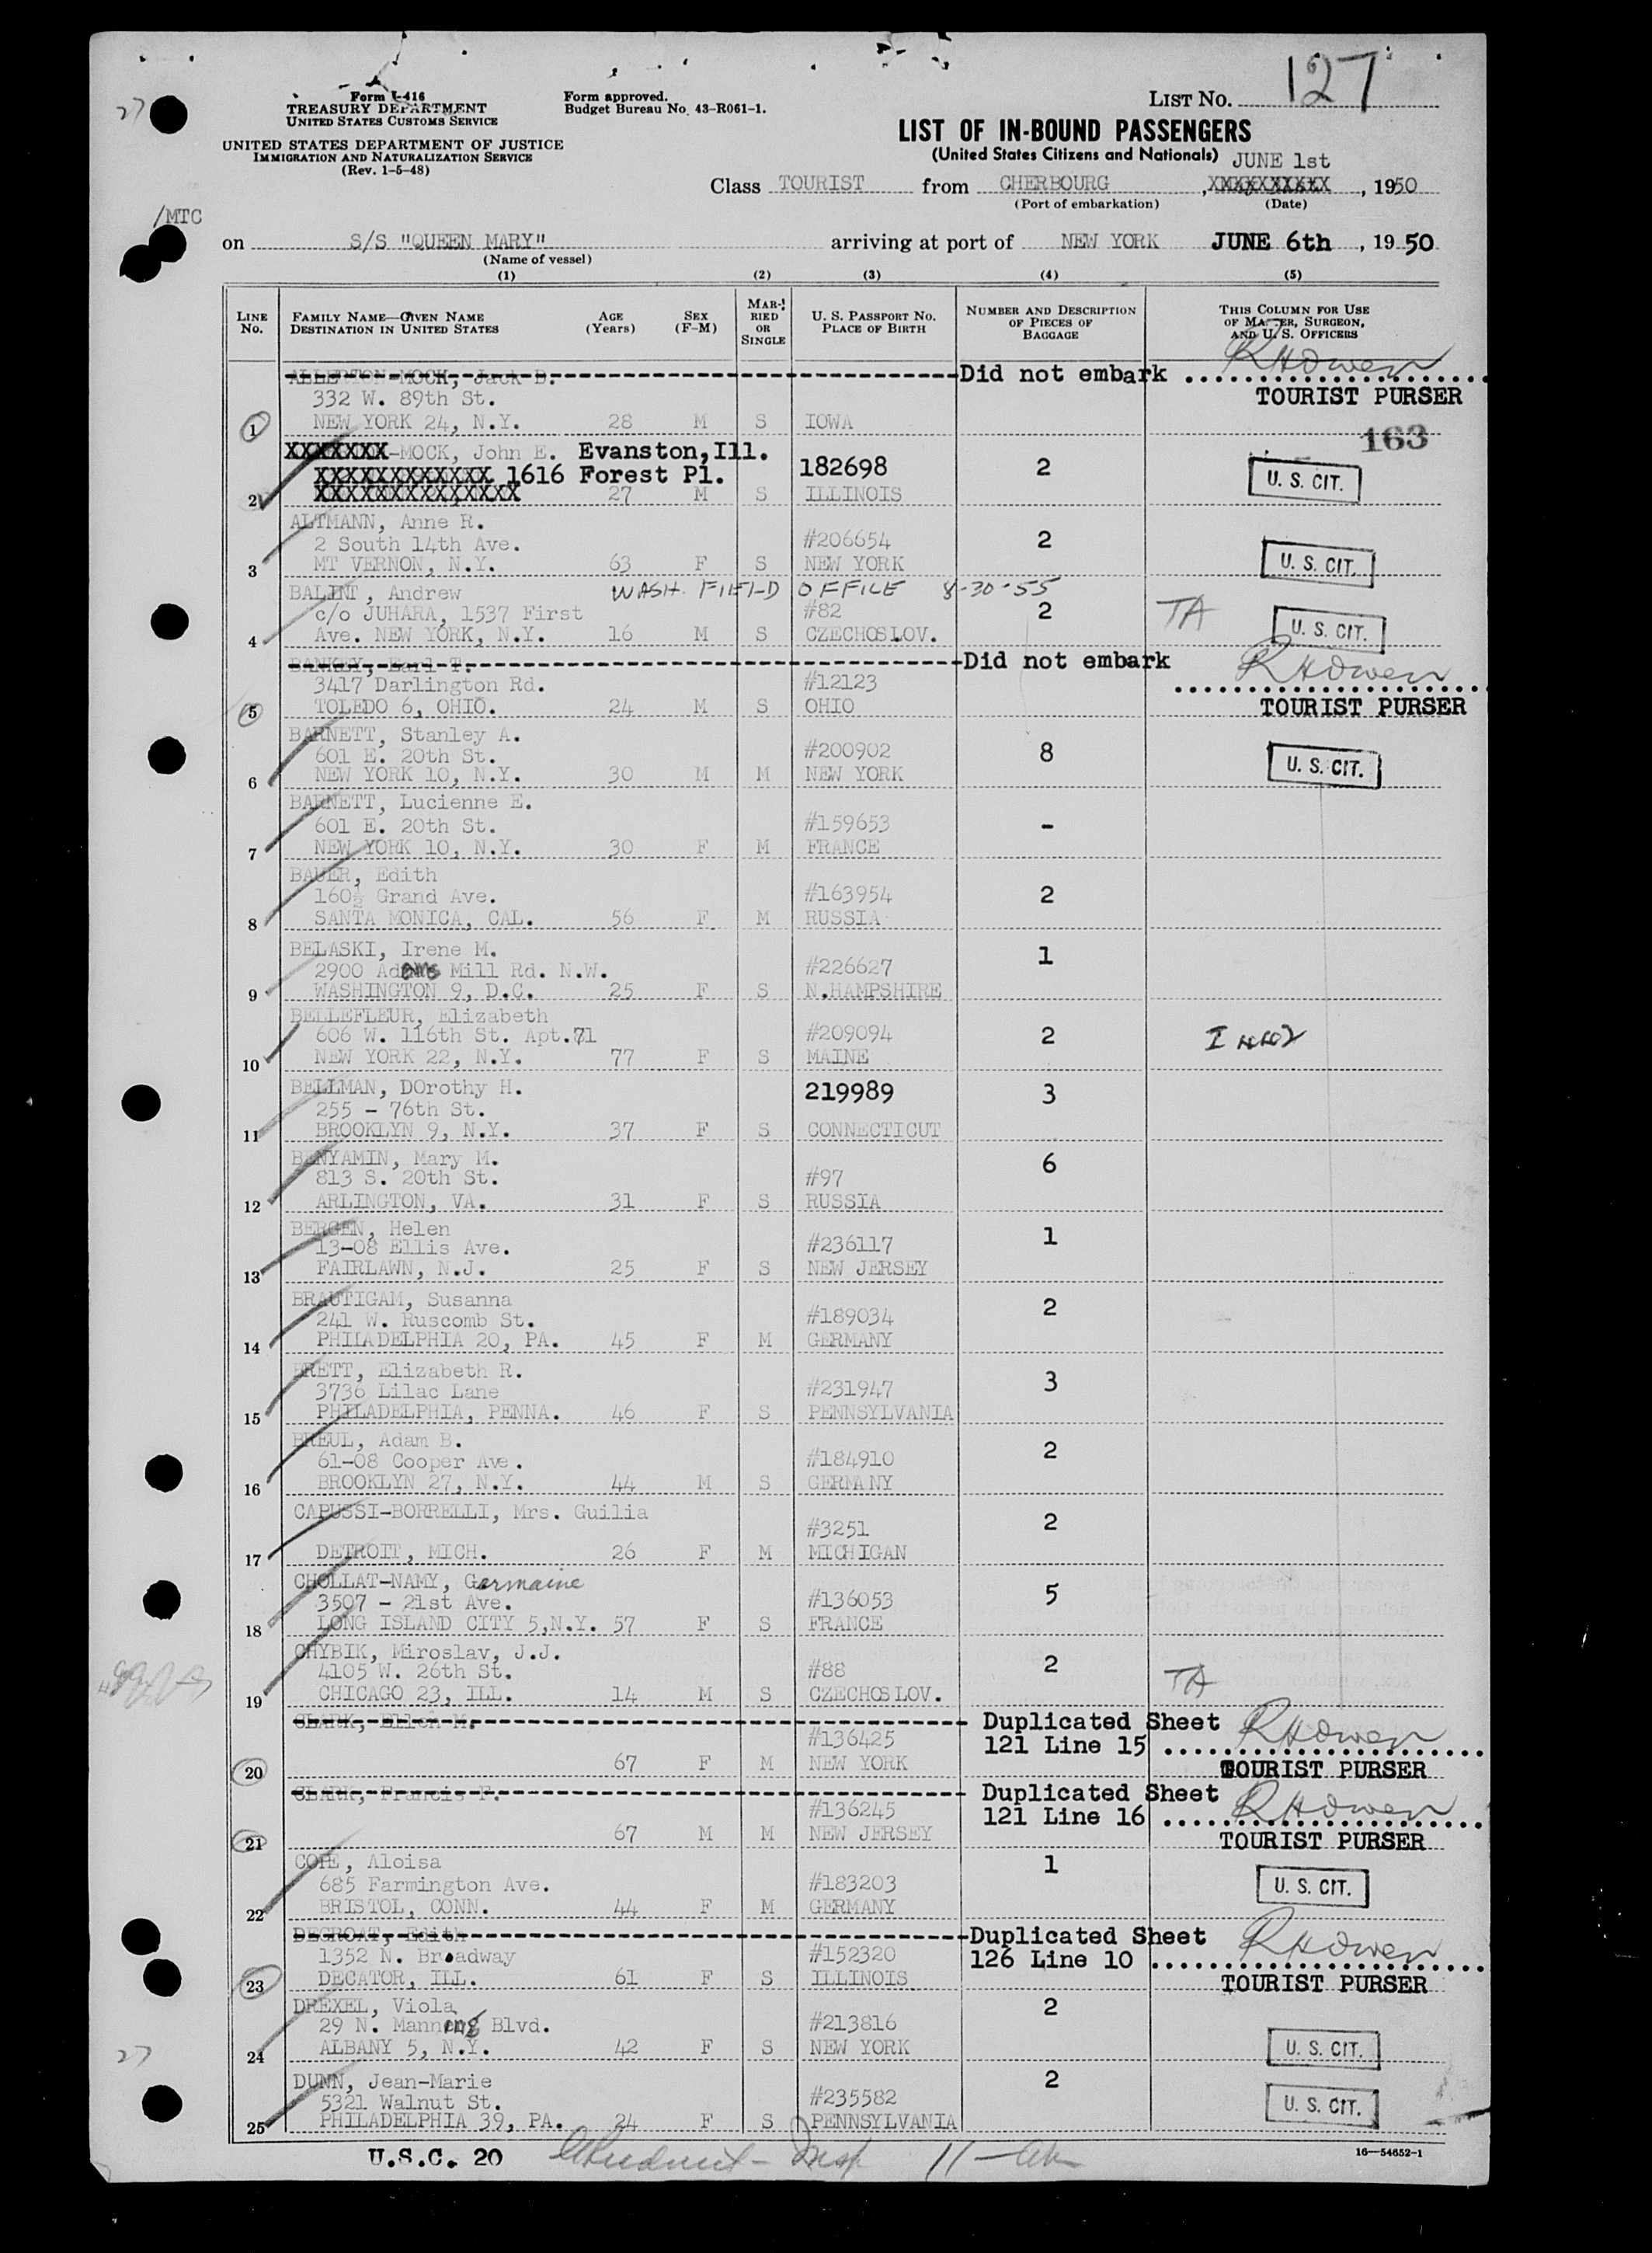 127
27
Form I-416
TREASURY DEPARTMENT
UNITED STATES CUSTOMS SERVICE
Form approved.
Budget Bureau No. 43-R061-1.
LIST NO.
UNITED STATES DEPARTMENT OF JUSTICE
IMMIGRATION AND NATURALIZATION SERVICE
(Rev. 1-5-48)
LIST OF IN-BOUND PASSENGERS
(United States Citizens and Nationals)
JUNE 1st
Class TOURIST from CHERBOURG , XXXXXXXXXX , 1950
(Port of embarkation) (Date)
/MTC
on S/S "QUEEN MARY" arriving at port of NEW YORK JUNE 6th , 1950
(Name of vessel)
(1) (2) (3) (4) (5)
LINE NO.
FAMILY NAME—GIVEN NAME
DESTINATION IN UNITED STATES
AGE (Years)
SEX (F-M)
MARRIED OR SINGLE
U. S. PASSPORT NO.
PLACE OF BIRTH
NUMBER AND DESCRIPTION OF PIECES OF BAGGAGE
THIS COLUMN FOR USE OF MASTER, SURGEON, AND U. S. OFFICERS
ALLERTON-MOCK, Jack B. Did not embark RHOwen
332 W. 89th St. TOURIST PURSER
1 NEW YORK 24, N.Y. 28 M S IOWA
163
XXXXXXX-MOCK, John E. Evanston, Ill.
XXXXXXXXXXXX 1616 Forest Pl. 182698 2 U. S. CIT.
2 XXXXXXXXXXXXXX 27 M S ILLINOIS
ALTMANN, Anne R.
2 South 14th Ave. #206654 2
3 MT VERNON, N.Y. 63 F S NEW YORK U. S. CIT.
BALINT, Andrew WASH. FIELD OFFICE 8-30-55
c/o JUHARA, 1537 First #82 2 TA
4 Ave. NEW YORK, N.Y. 16 M S CZECHOSLOV. U. S. CIT.
BANKEY, Earl T. Did not embark RHOwen
3417 Darlington Rd. #12123
5 TOLEDO 6, OHIO. 24 M S OHIO TOURIST PURSER
BARNETT, Stanley A.
601 E. 20th St. #200902 8
6 NEW YORK 10, N.Y. 30 M M NEW YORK U. S. CIT.
BARNETT, Lucienne E.
601 E. 20th St. #159653 -
7 NEW YORK 10, N.Y. 30 F M FRANCE
BAUER, Edith
160½ Grand Ave. #163954 2
8 SANTA MONICA, CAL. 56 F M RUSSIA
BELASKI, Irene M. 1
2900 Adams Mill Rd. N.W. #226627
9 WASHINGTON 9, D.C. 25 F S N.HAMPSHIRE
BELLEFLEUR, Elizabeth
606 W. 116th St. Apt.71 #209094 2
10 NEW YORK 22, N.Y. 77 F S MAINE
BELLMAN, DOrothy H. 219989 3
255 - 76th St.
11 BROOKLYN 9, N.Y. 37 F S CONNECTICUT
BENYAMIN, Mary M. 6
813 S. 20th St. #97
12 ARLINGTON, VA. 31 F S RUSSIA
BERGEN, Helen 1
13-08 Ellis Ave. #236117
13 FAIRLAWN, N.J. 25 F S NEW JERSEY
BRAUTIGAM, Susanna 2
241 W. Ruscomb St. #189034
14 PHILADELPHIA 20, PA. 45 F M GERMANY
BRETT, Elizabeth R. 3
3736 Lilac Lane #231947
15 PHILADELPHIA, PENNA. 46 F S PENNSYLVANIA
BREUL, Adam B. 2
61-08 Cooper Ave. #184910
16 BROOKLYN 27, N.Y. 44 M S GERMANY
CAPUSSI-BORRELLI, Mrs. Guilia 2
#3251
17 DETROIT, MICH. 26 F M MICHIGAN
CHOLLAT-NAMY, Germaine 5
3507 - 21st Ave. #136053
18 LONG ISLAND CITY 5,N.Y. 57 F S FRANCE
CHYBIK, Miroslav, J.J. 2
4105 W. 26th St. #88 TA
19 CHICAGO 23, ILL. 14 M S CZECHOSLOV.
CLARK, Ellen M. Duplicated Sheet RHOwen
#136425 121 Line 15
20 67 F M NEW YORK TOURIST PURSER
CLARK, Francis F. Duplicated Sheet RHOwen
#136245 121 Line 16
21 67 M M NEW JERSEY TOURIST PURSER
COPE, Aloisa 1
685 Farmington Ave. #183203 U. S. CIT.
22 BRISTOL, CONN. 44 F M GERMANY
DECROAT, Edith Duplicated Sheet RHOwen
1352 N. Broadway #152320 126 Line 10
23 DECATOR, ILL. 61 F S ILLINOIS TOURIST PURSER
DREXEL, Viola 2
29 N. Manning Blvd. #213816
24 ALBANY 5, N.Y. 42 F S NEW YORK U. S. CIT.
27
DUNN, Jean-Marie 2
5321 Walnut St. #235582 U. S. CIT.
25 PHILADELPHIA 39, PA. 24 F S PENNSYLVANIA
U.S.C. 20
16—54652-1